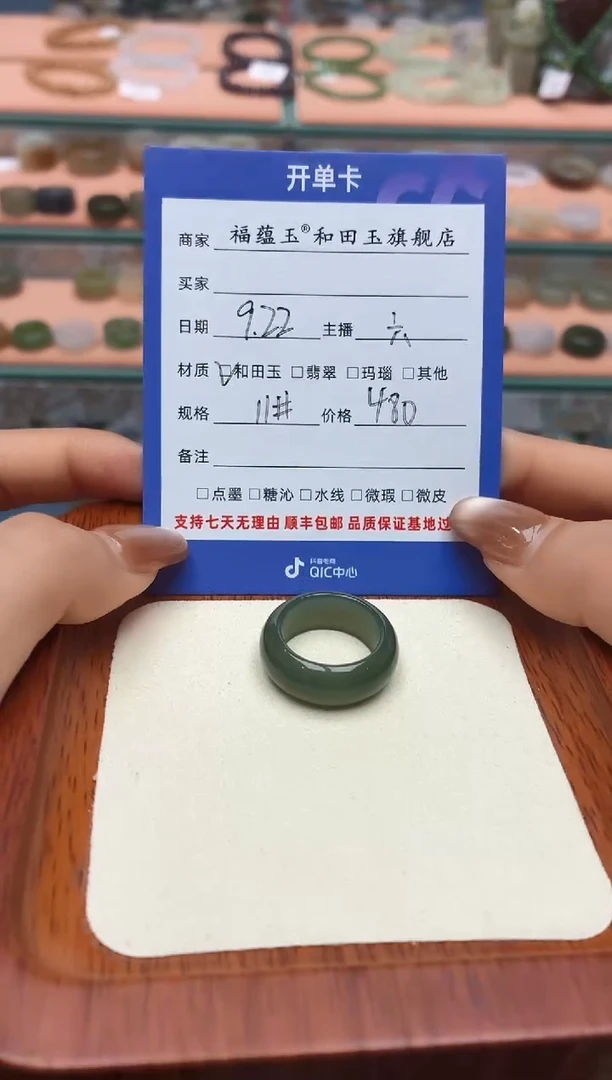 开单卡
商家 福蕴玉®和田玉旗舰店
买家
日期 9.22 主播 六
材质 ☑和田玉 □翡翠 □玛瑙 □其他
规格 11# 价格 480
备注
□点墨 □糖沁 □水线 □微瑕 □微皮
支持七天无理由 顺丰包邮 品质保证基地过
抖音电商
QIC中心